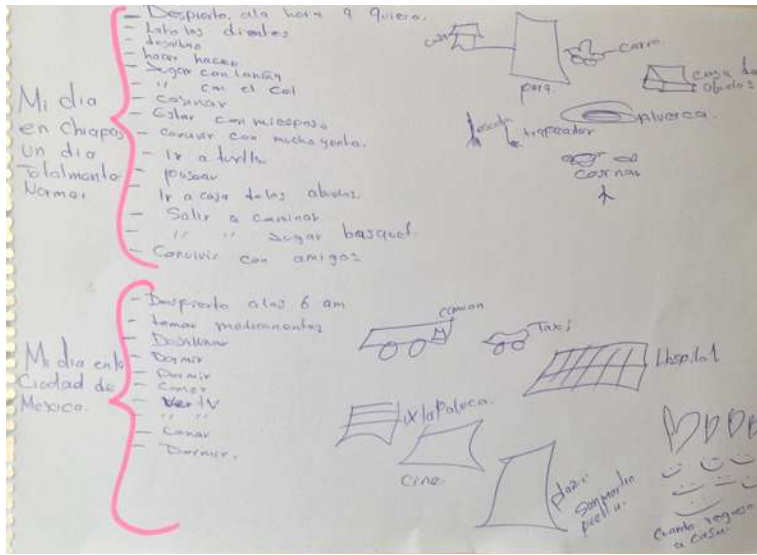 Mi dia
en Chiapas
un dia
Totalmente
Normal
- Despierto ala hora q quiero.
- Labo los dientes
- desaluno
- hacer hacer
- Jugar con
- " " en el Cel
- Cosinar
- Estar con mi esposo
- convivir con mucha gente.
- Ir a
- pasear
Ir a casa de los abuelos.
- Salir a caminar
- " " Jugar basquet.
- Convivir con amigos
casa
carro
casa de
abuelos
alverca.
trapeador
escoba
cosinar
Mi dia en la
Ciudad de
Mexico.
- Despierto a las 6 am
- tomar medicamentos
- Desallunar
- Dormir
- Dormir
- Comer
- Ver tv
- " "
- Cenar
- Dormir.
Taxi
Hospital
ixtapaluca.
cine.
plaza
San martin
cuando regreso
a casa.